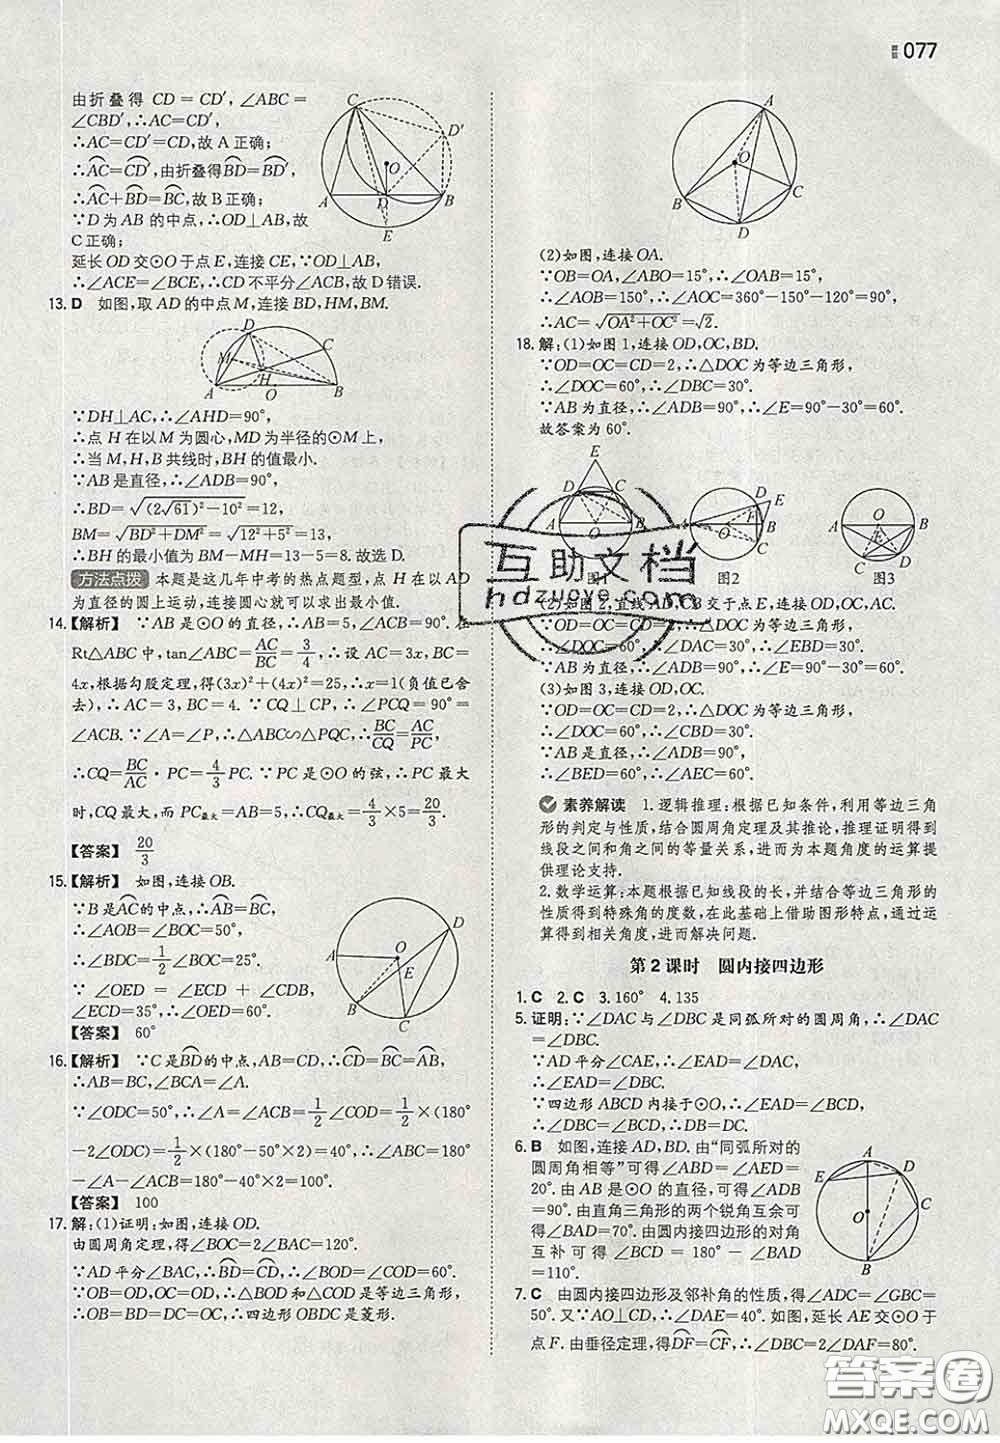 答案077
由折叠得 CD=CD′,∠ABC=
∠CBD′,∴AC=CD′,
∴AC=CD′=CD,故 A 正确;
∴A͡C=C͡D′,由折叠得B͡D=B͡D′,
∴A͡C+B͡D=B͡C,故 B 正确;
∵D 为 AB 的中点,∴OD⊥AB,故
C 正确;
延长 OD 交⊙O 于点 E,连接 CE,∵OD⊥AB,
∴∠ACE=∠BCE,∴CD 不平分∠ACB,故 D 错误.
C D′ O A D B E
13. D 如图,取 AD 的中点 M,连接 BD,HM,BM.
D C M H A O B
∵DH⊥AC,∴∠AHD=90°,
∴点 H 在以 M 为圆心,MD 为半径的⊙M 上,
∴当 M,H,B 共线时,BH 的值最小.
∵AB 是直径,∴∠ADB=90°,
∴BD=√((2√61)²-10²)=12,
BM=√(BD²+DM²)=√(12²+5²)=13,
∴BH 的最小值为 BM-MH=13-5=8.故选 D.
方法点拨 本题是这几年中考的热点题型,点 H 在以 AD
为直径的圆上运动,连接圆心就可以求出最小值.
14.【解析】 ∵AB 是⊙O 的直径,∴AB=5,∠ACB=90°.在
Rt△ABC 中,tan∠ABC=AC/BC=3/4,∴设 AC=3x,BC=
4x,根据勾股定理,得(3x)²+(4x)²=25,∴x=1(负值已舍
去),∴AC=3,BC=4.∵CQ⊥CP,∴∠PCQ=90°=
∠ACB.∵∠A=∠P,∴△ABC∽△PQC,∴BC/CQ=AC/PC,
∴CQ=BC/AC·PC=4/3PC.∵PC 是⊙O 的弦,∴PC 最大
时,CQ 最大,而 PC最大=AB=5,∴CQ最大=4/3×5=20/3
【答案】 20/3
15.【解析】 如图,连接 OB.
∵B 是A͡C的中点,∴A͡B=B͡C,
∴∠AOB=∠BOC=50°,
∴∠BDC=1/2∠BOC=25°.
∵∠OED=∠ECD+∠CDB,
∠ECD=35°,∴∠OED=60°.
【答案】 60°
A O D E B C
16.【解析】 ∵C 是B͡D的中点,AB=CD,∴C͡D=B͡C=A͡B,
∴AB=BC,∠BCA=∠A.
∵∠ODC=50°,∴∠A=∠ACB=1/2∠COD=1/2×(180°
-2∠ODC)=1/2×(180°-50°×2)=40°,∴∠ABC=180°
-∠A-∠ACB=180°-40°-40°=100°.
【答案】 100
17. 解:(1)证明:如图,连接 OD.
由圆周角定理,得∠BOC=2∠BAC=120°.
∵AD 平分∠BAC,∴B͡D=C͡D,∴∠BOD=∠COD=60°.
∵OB=OD,OC=OD,∴△BOD 和△COD 是等边三角形,
∴OB=BD=DC=OC,∴四边形 OBDC 是菱形.
A O B C D
(2)如图,连接 OA.
∵OB=OA,∠ABO=15°,∴∠OAB=15°,
∴∠AOB=150°,∴∠AOC=360°-150°-120°=90°,
∴AC=√(OA²+OC²)=√2.
18. 解:(1)如图 1,连接 OD,OC,BD.
∵OD=OC=CD=2,∴△DOC 为等边三角形,
∴∠DOC=60°,∴∠DBC=30°.
∵AB 为直径,∴∠ADB=90°,∴∠E=90°-30°=60°.
故答案为 60°.
E D C A O B 图1
D E F A O B C 图2
A O B E C D 图3
(2)如图 2,直线 AD,CB 交于点 E,连接 OD,OC,AC.
∵OD=OC=CD=2,∴△DOC 为等边三角形,
∴∠DOC=60°,∴∠DAC=30°,∴∠EBD=30°.
∵AB 为直径,∴∠ADB=90°,∴∠E=90°-30°=60°.
(3)如图 3,连接 OD,OC.
∵OD=OC=CD=2,∴△DOC 为等边三角形,
∴∠DOC=60°,∴∠CBD=30°.
∵AB 是直径,∴∠ACB=90°,
∴∠BED=60°,∴∠AEC=60°.
素养解读 1. 逻辑推理:根据已知条件,利用等边三角
形的判定与性质,结合圆周角定理及其推论,推理证明得到
线段之间和角之间的等量关系,进而为本题角度的运算提
供理论支持.
2. 数学运算:本题根据已知线段的长,并结合等边三角形的
性质得到特殊角的度数,在此基础上借助图形特点,通过运
算得到相关角度,进而解决问题.
第 2 课时 圆内接四边形
1. C 2. C 3. 160° 4. 135
5. 证明:∵∠DAC 与∠DBC 是同弧所对的圆周角,∴∠DAC
=∠DBC.
∵AD 平分∠CAE,∴∠EAD=∠DAC,
∴∠EAD=∠DBC.
∵四边形 ABCD 内接于⊙O,∴∠EAD=∠BCD,
∴∠DBC=∠BCD,∴DB=DC.
6. B 如图,连接 AD,BD.由“同弧所对的
圆周角相等”可得∠ABD=∠AED=
20°.由 AB 是⊙O 的直径,可得∠ADB
=90°.由直角三角形的两个锐角互余可
得∠BAD=70°.由圆内接四边形的对角
互补可得∠BCD=180°-∠BAD
=110°.
A E D C O B
7. C 由圆内接四边形及邻补角的性质,得∠ADC=∠GBC=
50°.又∵AO⊥CD,∴∠DAE=40°.如图,延长 AE 交⊙O 于
点 F.由垂径定理,得D͡F=C͡F,∴∠DBC=2∠DAF=80°.
互助文档
hdzuoye.com
答案圈
MXQE.COM